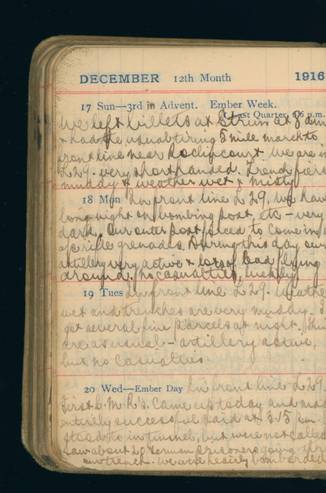 DECEMBER 12th Month 1916
17 Sun—3rd in Advent. Ember Week.
Last Quarter, 6 p.m.
We left billets at Etrun at 8 am
& had the usual tiring 5 mile march to
front line near Roclincourt. We are in
L29. very short handed. Trenches are
muddy & weather wet & misty
18 Mon In front line L29. We have
long night on bombing post, etc – very
dark. Our outer post is used to come in
of rifle grenades. During this day our
artillery very active & lots of lead flying
around. No casualties, luckily
19 Tues In front line L29. Weather
wet and trenches are very muddy. I
get several fine parcels at night.
are as usual – artillery active,
but no casualties.
20 Wed—Ember Day In front line L29
First C.M.R's. came up today and made
entirely successful raid at 3.15 pm.
stood to in tunnel, but were not called
saw about 20 German prisoners going
our trench. We were heavily bombarded